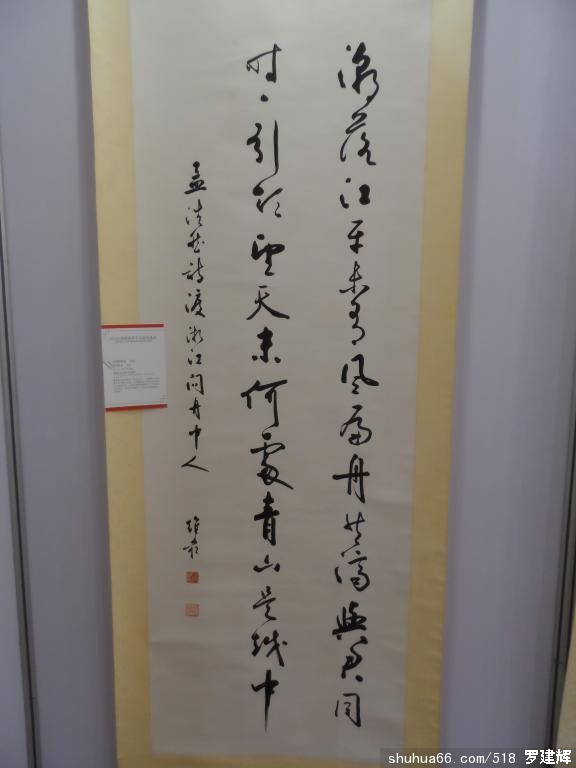 潮落江平未有風扁舟共濟與君同
时々引領望天末何處青山是越中
孟浩然詩渡浙江問舟中人
shuhua66.com/518 罗建辉